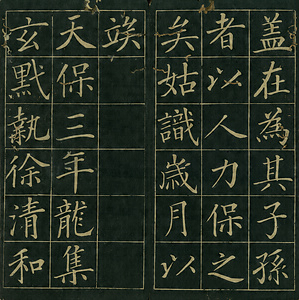 盖在為其子孫
者以人力保之
矣姑識歳月以
竢
天保三年龍集
玄黓執徐清和